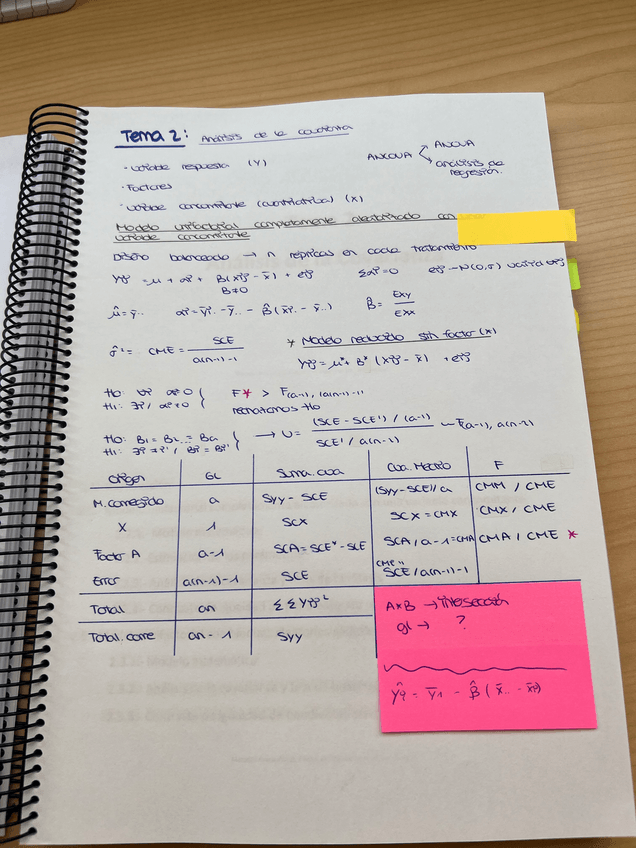 Tema 2: Análisis de la covarianza
· Variable respuesta (Y)
ANCOVA
ANOVA
análisis de regresión.
· Factores
· Variable concomitante (cuantitativa) (X)
Modelo unifactorial completamente aleatorizado con una
variable concomitante
Diseño balanceado → n réplicas en cada tratamiento
Yij = μ + αi + β(xij - x̄) + eij   Σαi = 0   eij ~ N(0,σ)
β≠0
μ̂ = ȳ..   αi = ȳi. - ȳ.. - β̂(x̄i. - x̄..)   β̂ = Exy / Exx
σ̂² = CME = SCE / a(n-1)-1
* Modelo reducido sin factor (x)
Yij = μ* + β* (xij - x̄) + eij
H0: ∀i αi=0
H1: ∃i / αi≠0
F* > F(a-1), (a(n-1)-1
rechazamos H0
H0: B1 = B2 ... = Ba
H1: ∃i≠i' / Bi = Bi'
→ U = (SCE - SCE') / (a-1) / SCE' / a(n-1) ~ F(a-1), a(n-2)
Origen | GL | Suma. cua | Cua. Medio | F
M. corregido | a | Syy - SCE | (Syy-SCE)/a | CMM / CME
X | 1 | SCX | SCX = CMX | CMX / CME
Factor A | a-1 | SCA = SCE* - SCE | SCA / a-1 = CMA | CMA / CME *
Error | a(n-1)-1 | SCE | CME = SCE / a(n-1)-1
Total | an | ΣΣYij²
Total. corre | an - 1 | Syy
A×B → Intersección
gl → ?
Ŷi = Ȳi - β̂ ( x̄.. - x̄i)